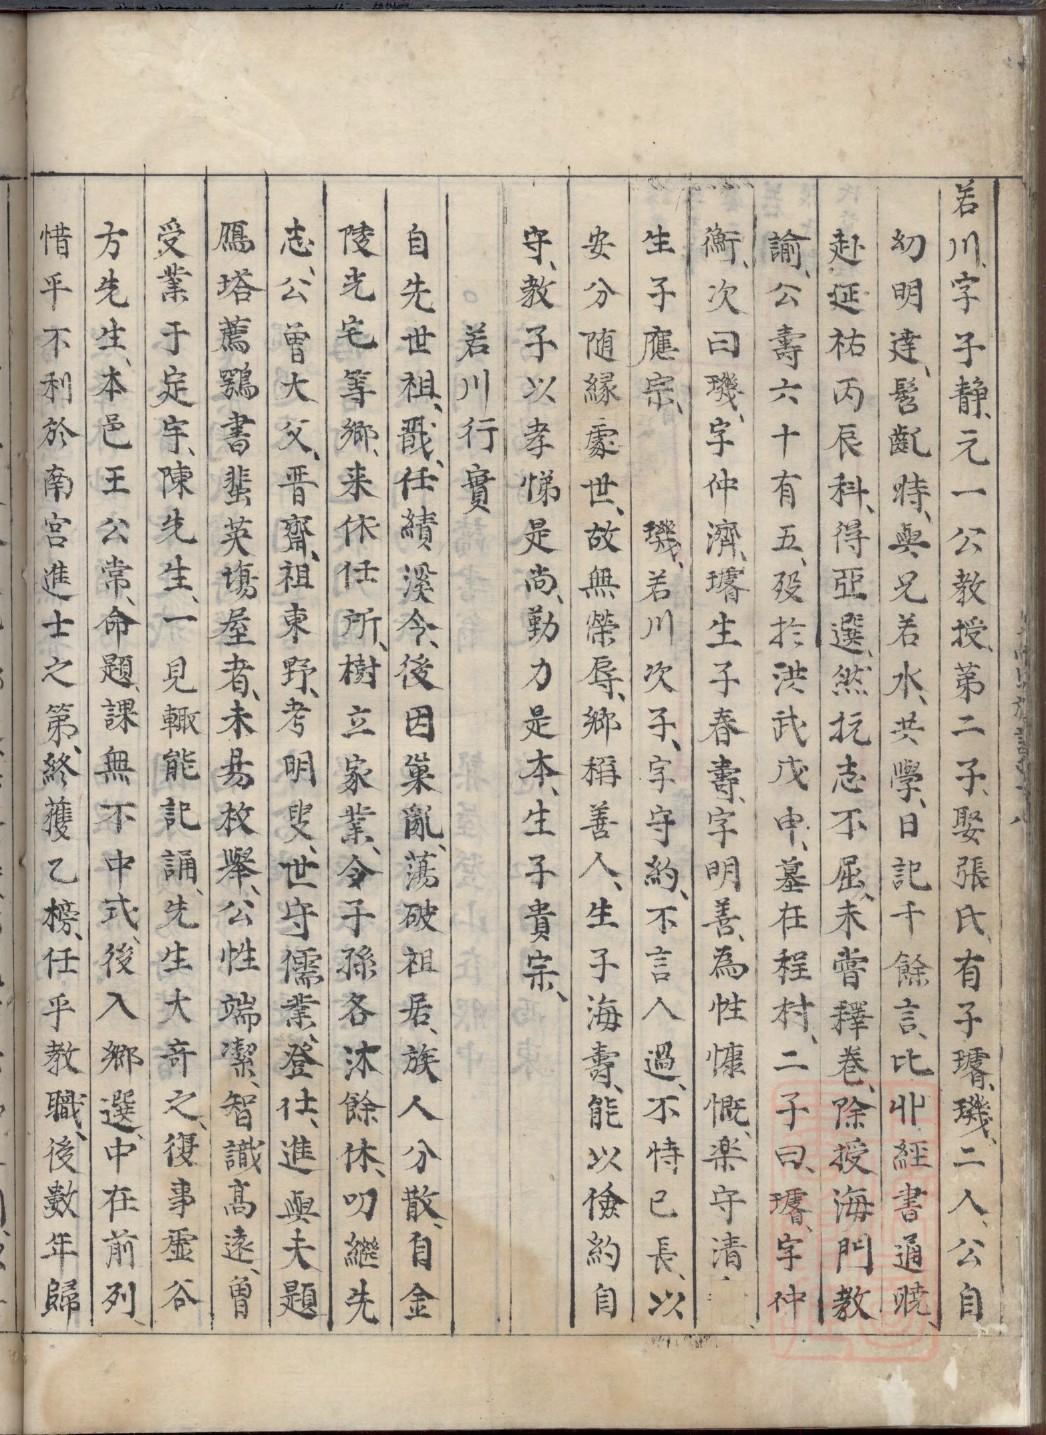 若川、字子静、元一公教授第二子、娶張氏、有子璿、璣、二人、公自
幼明達、髫齔時、與兄若水、共學、日記千餘言、比丱經書通曉、
赴延祐丙辰科、得亞選、然抗志不屈、未嘗釋卷、除授海門教
諭、公壽六十有五、殁於洪武戊申、墓在程村、二子曰、璿、字仲
衡、次曰璣、字仲濟、璿生子春壽、字明善、為性慷慨、楽守清
生子應宗、 璣、若川次子、字守約、不言人過、不恃已長、以
安分随緣處世、故無榮辱、鄉稱善人、生子海壽、能以儉約自
守、教子以孝悌是尚、勤力是本、生子貴宗、
若川行實
自先世祖、戩、任績溪令、後因巢亂、蕩破祖居、族人分散、自金
陵光宅等鄉、来依任所、樹立家業、令子孫各沐餘休、叨繼先
志、公曾大父、晋齋、祖東野、考明叟、世守儒業、登仕、進與夫題
鴈塔薦鶚書蜚英塲屋者、未易枚舉、公性端潔、智識高遠、曾
受業于定宇、陳先生、一見輙能記誦、先生大奇之、復事虛谷
方先生、本邑王公常、命題、課無不中式、後入鄉選、中在前列
惜乎不利於南宫進士之第、終獲乙榜、任乎教職、後數年歸